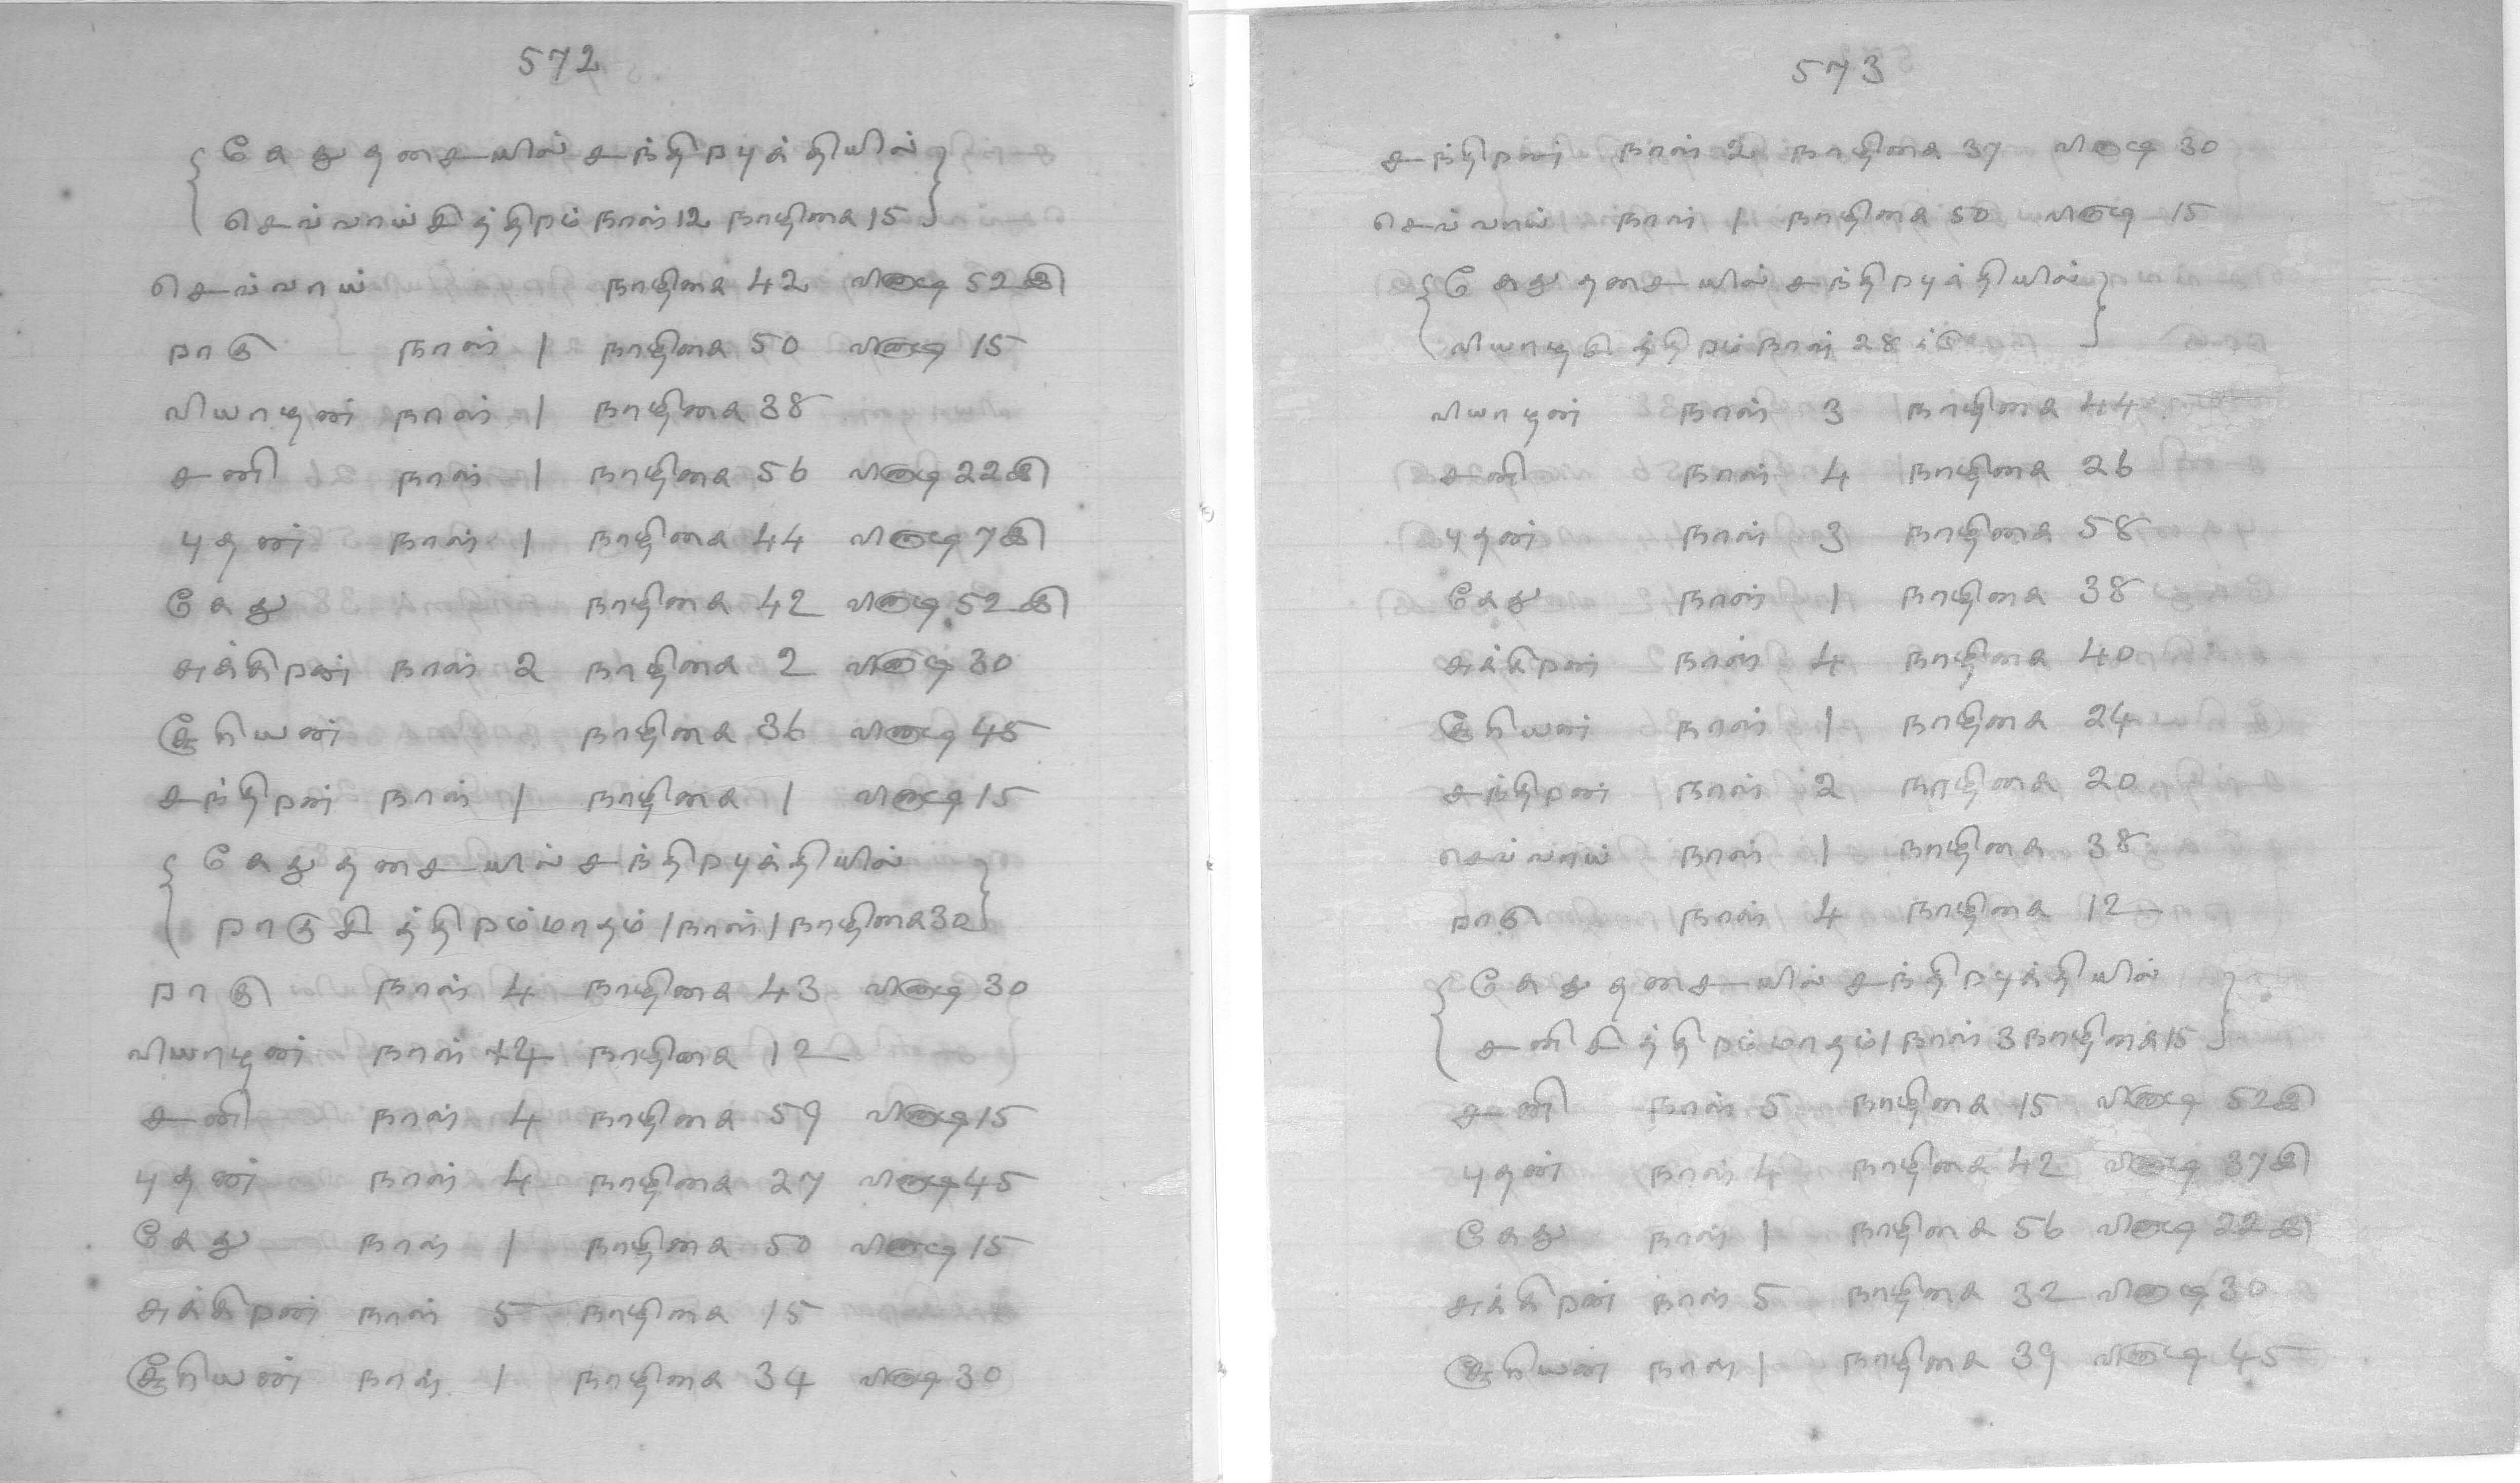 572
கேது தசையில் சந்திறபுத்தியில்
செவ்வாய்சித்திறம் நாள் 12 நாழிகை 15
செவ்வாய் நாழிகை 42 விநாடி 52இ
றாகு நாள் 1 நாழிகை 50 விநாடி 15
வியாழன் நாள் 1 நாழிகை 38
சனி நாள் 1 நாழிகை 56 விநாடி 22இ
புதன் நாள் 1 நாழிகை 44 விநாடி 7இ
கேது நாழிகை 42 விநாடி 52இ
சுக்கிறன் நாள் 2 நாழிகை 2 விநாடி 30
சூரியன் நாழிகை 36 விநாடி 45
சந்திறன் நாள் 1 நாழிகை 1 விநாடி 15
கேது தசையில் சந்திறபுத்தியில்
றாகுசித்திறம் மாதம் 1 நாள் 1 நாழிகை 30
றாகு நாள் 4 நாழிகை 43 விநாடி 30
வியாழன் நாள் 4 நாழிகை 12
சனி நாள் 4 நாழிகை 59 விநாடி 15
புதன் நாள் 4 நாழிகை 27 விநாடி 45
கேது நாள் 1 நாழிகை 50 விநாடி 15
சுக்கிறன் நாள் 5 நாழிகை 15
சூரியன் நாள் 1 நாழிகை 34 விநாடி 30
573
சந்திறன் நாள் 2 நாழிகை 37 விநாடி 30
செவ்வாய் நாள் 1 நாழிகை 50 விநாடி 15
கேது தசையில் சந்திறபுத்தியில்
வியாழசித்திறம் நாள் 28
வியாழன் நாள் 3 நாழிகை 44
சனி நாள் 4 நாழிகை 26
புதன் நாள் 3 நாழிகை 58
கேது நாள் 1 நாழிகை 38
சுக்கிறன் நாள் 4 நாழிகை 40
சூரியன் நாள் 1 நாழிகை 24
சந்திறன் நாள் 2 நாழிகை 20
செவ்வாய் நாள் 1 நாழிகை 38
றாகு நாள் 4 நாழிகை 12
கேது தசையில் சந்திறபுத்தியில்
சனிசித்திறம் மாதம் 1 நாள் 3 நாழிகை 15
சனி நாள் 5 நாழிகை 15 விநாடி 52இ
புதன் நாள் 4 நாழிகை 42 விநாடி 37இ
கேது நாள் 1 நாழிகை 56 விநாடி 22இ
சுக்கிறன் நாள் 5 நாழிகை 32 விநாடி 30
சூரியன் நாள் 1 நாழிகை 39 விநாடி 45